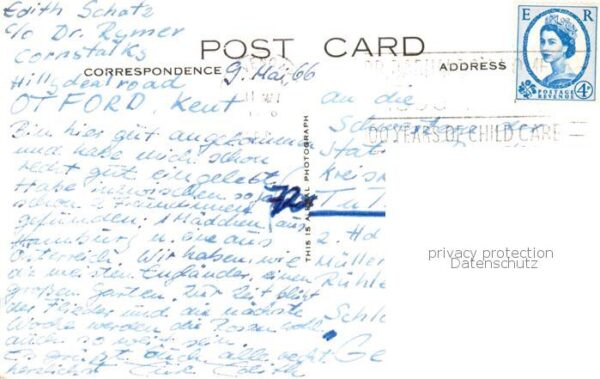 Edith Schatz
c/o Dr. Rymer
Cornstalks
Hillydeal road
OTFORD, Kent
POST CARD
CORRESPONDENCE
ADDRESS
9. Mai, 66
E R
POSTAGE REVENUE
4D
YEARS OF CHILD CARE
THIS IS A REAL PHOTOGRAPH
Bin hier gut angekommen
und habe mich schon
recht gut eingelebt.
Habe inzwischen sogar
schon 2 Freundinnen
gefunden: 1 Mädchen aus
Hamburg u. eine aus
Österreich. Wir haben, wie
die meisten Engländer, einen
großen Garten. Zur Zeit blüht
der Flieder und die nächste
Woche werden die Rosen wohl
auch so weit sein.
Es grüßt Euch alle recht
herzlichst Eure Edith
an die
2. Hd
Müller
Kreis
privacy protection
Datenschutz